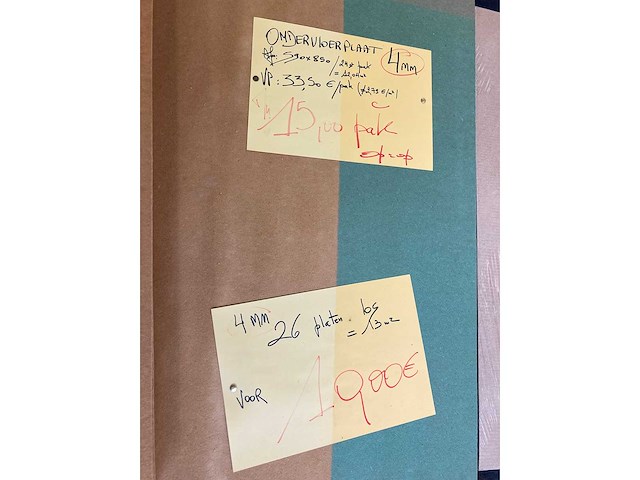 ONDERVLOERPLAAT
4 MM
Afm: 590x850 / 24st pak
= 12,04 m²
VP: 33,50 €/pak (≠2,79 €/m²)
15,00 pak
op=op
4 MM 26 platen los
= 13 m²
VOOR 19,00€